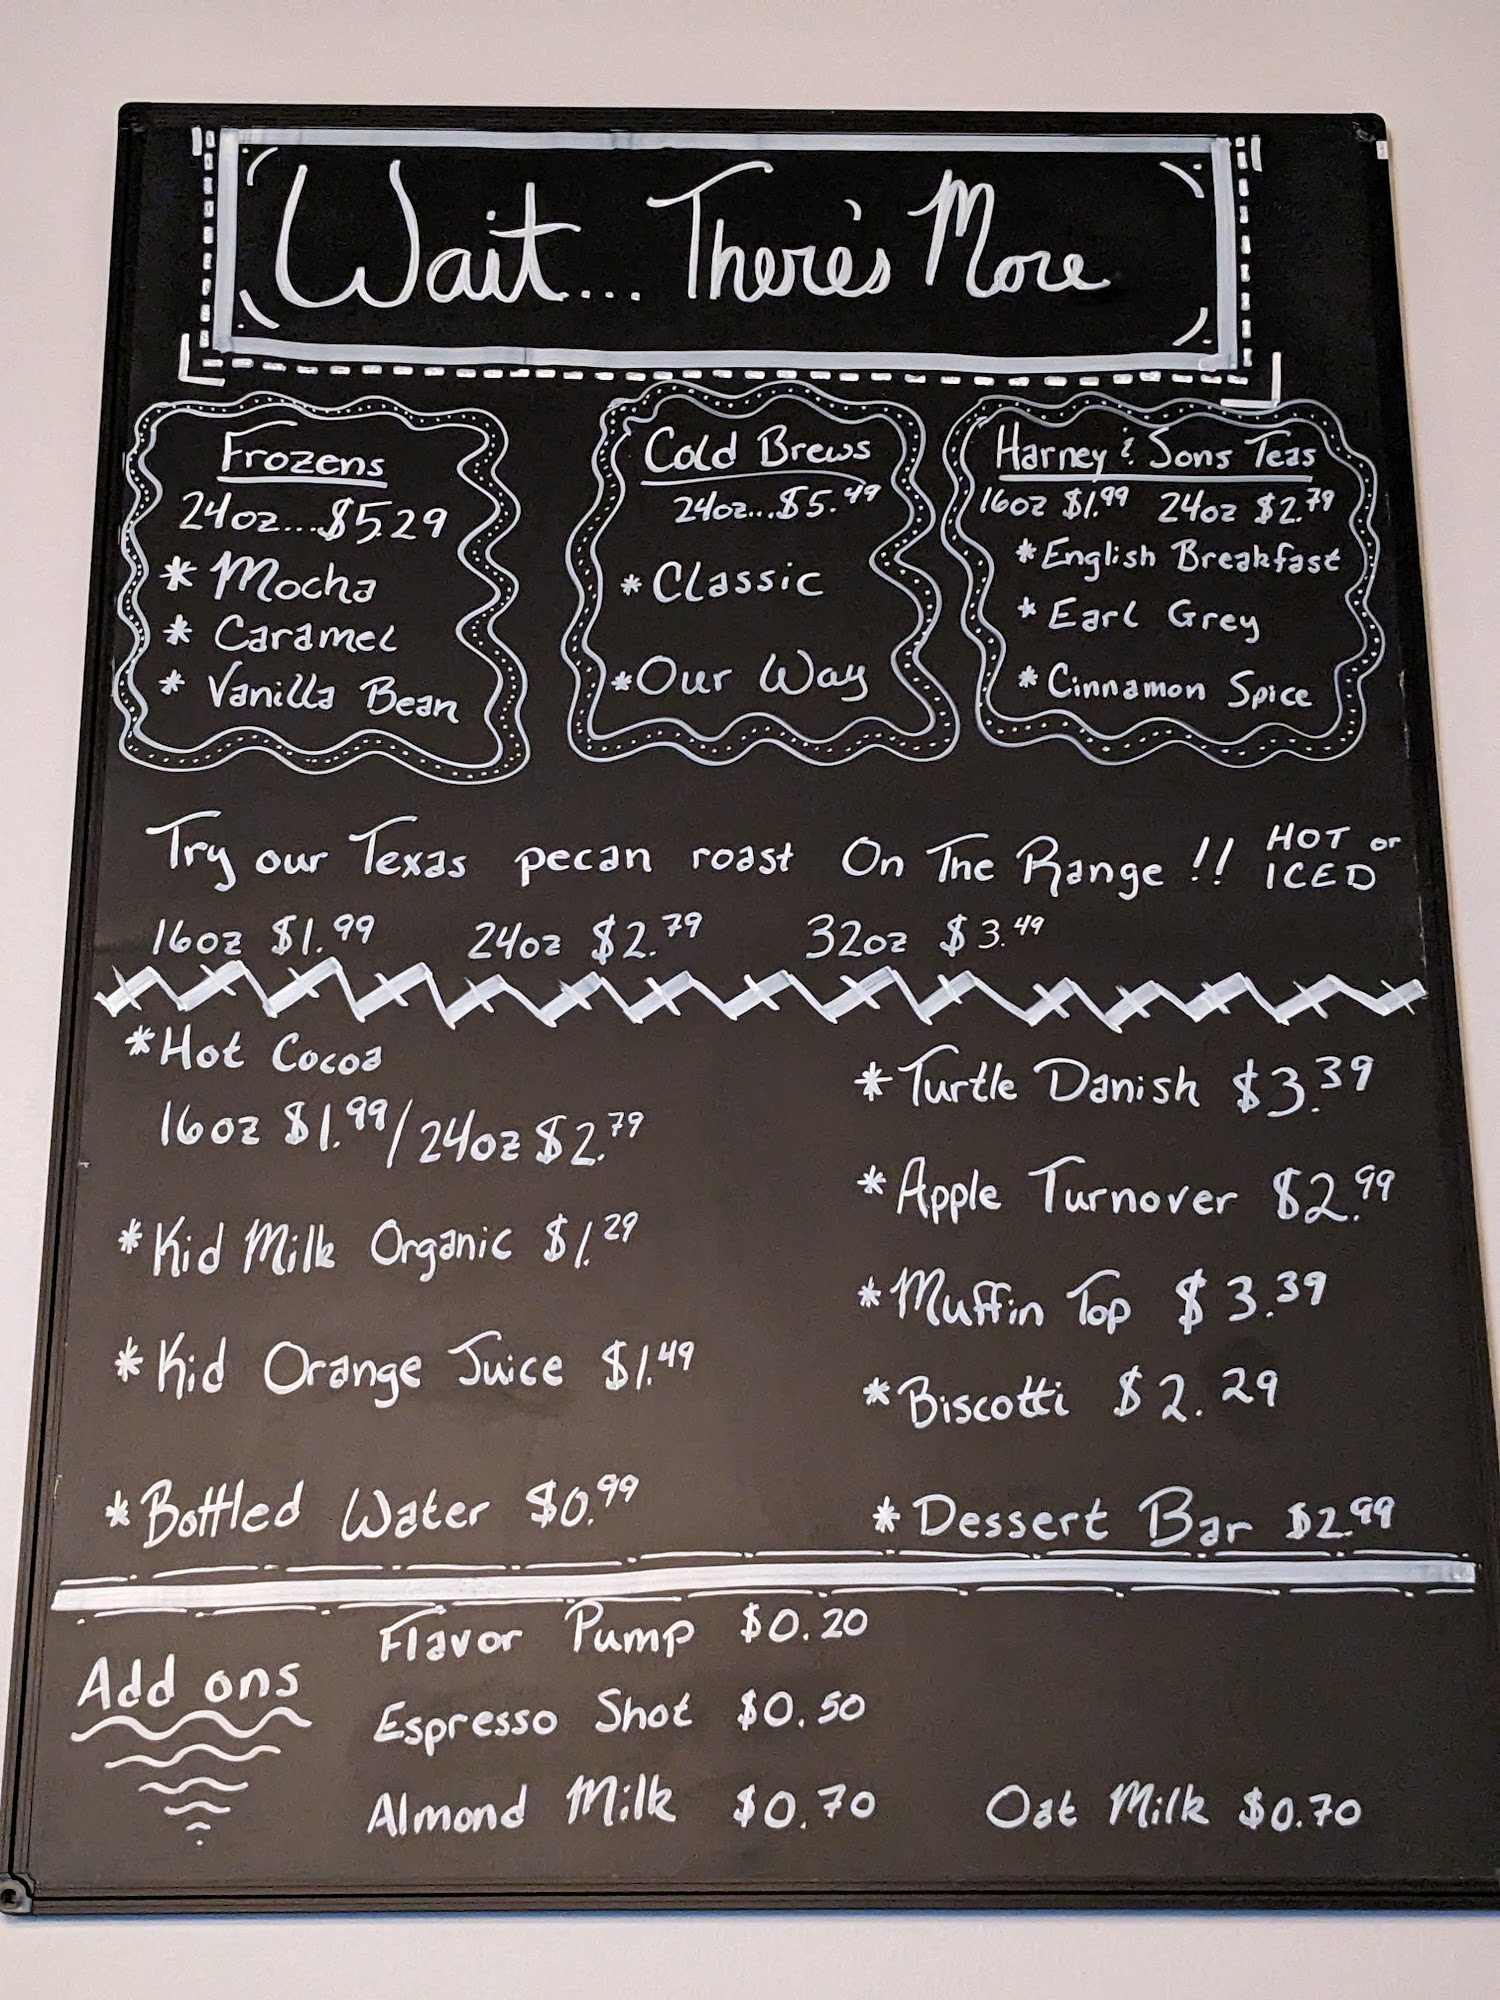 Wait... There's More
Frozens
24oz...$5.29
* Mocha
* Caramel
* Vanilla Bean
Cold Brews
24oz...$5.49
* Classic
* Our Way
Harney & Sons Teas
16oz $1.99 24oz $2.79
* English Breakfast
* Earl Grey
* Cinnamon Spice
Try our Texas pecan roast On The Range!! HOT or
ICED
16oz $1.99 24oz $2.79 32oz $3.49
* Hot Cocoa
16oz $1.99/24oz $2.79
* Kid Milk Organic $1.29
* Kid Orange Juice $1.49
* Bottled Water $0.99
* Turtle Danish $3.39
* Apple Turnover $2.99
* Muffin Top $3.39
* Biscotti $2.29
* Dessert Bar $2.99
Add ons
Flavor Pump $0.20
Espresso Shot $0.50
Almond Milk $0.70 Oat Milk $0.70